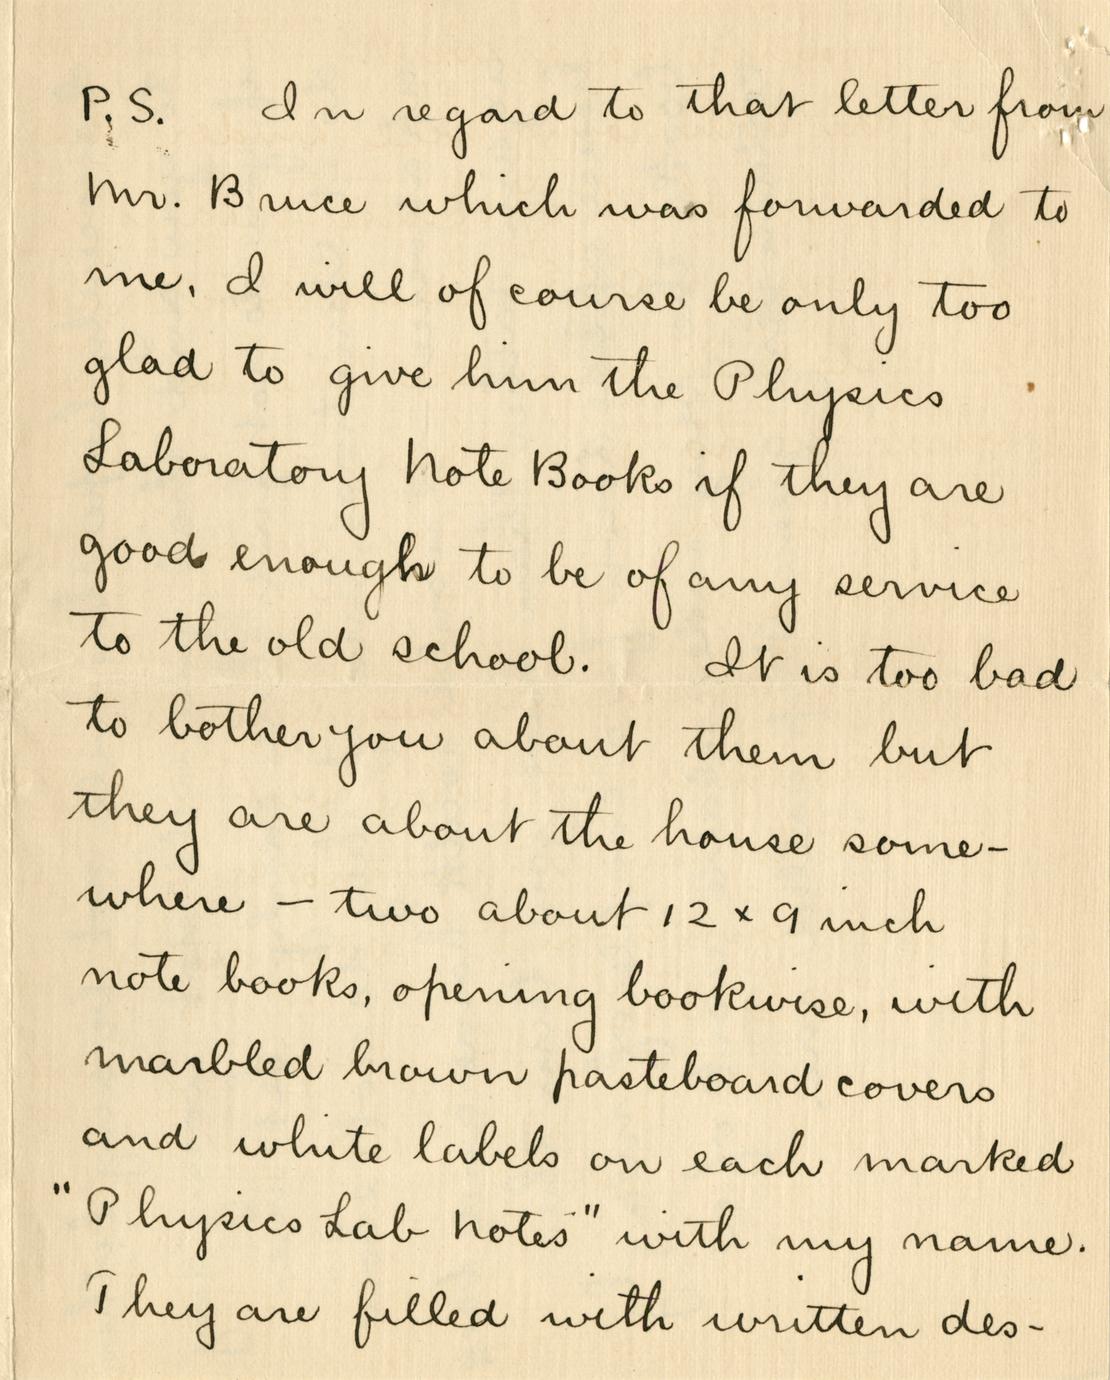 P.S. In regard to that letter from
Mr. Bruce which was forwarded to
me, I will of course be only too
glad to give him the Physics
Laboratory Note Books if they are
good enough to be of any service
to the old school. It is too bad
to bother you about them but
they are about the house some-
where – two about 12 x 9 inch
note books, opening bookwise, with
marbled brown pasteboard covers
and white labels on each marked
"Physics Lab Notes" with my name.
They are filled with written des-